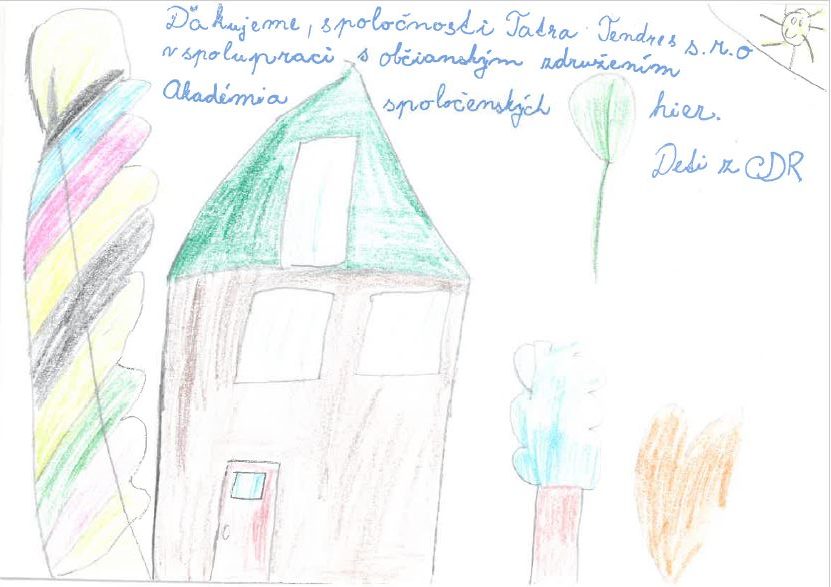 Ďakujeme, spoločnosti Tatra Tendres s.r.o
v spolupraci s občianským združením
Akadémia spoločenských hier.
Deti z CDR